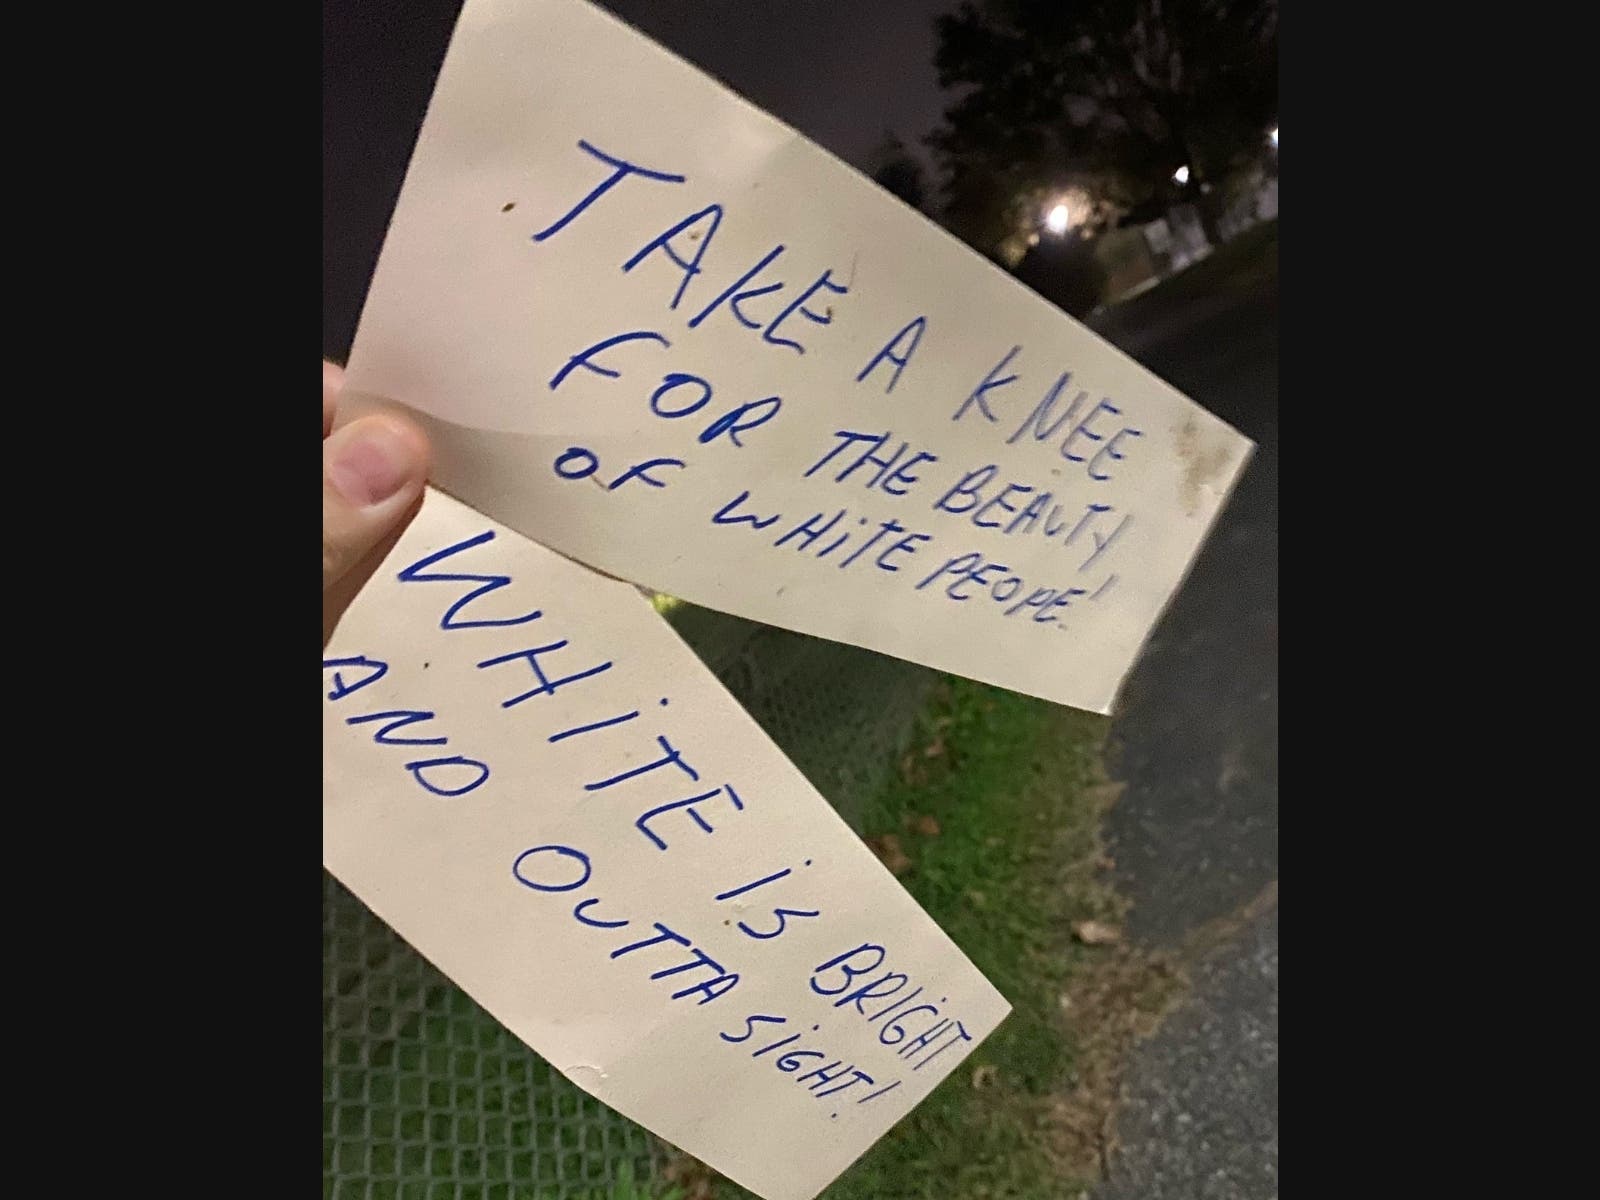 TAKE A KNEE
FOR THE BEAUTY
OF WHiTE PEOPE!
WHiTE iS BRIGHT
AND OUTTA SiGHT!